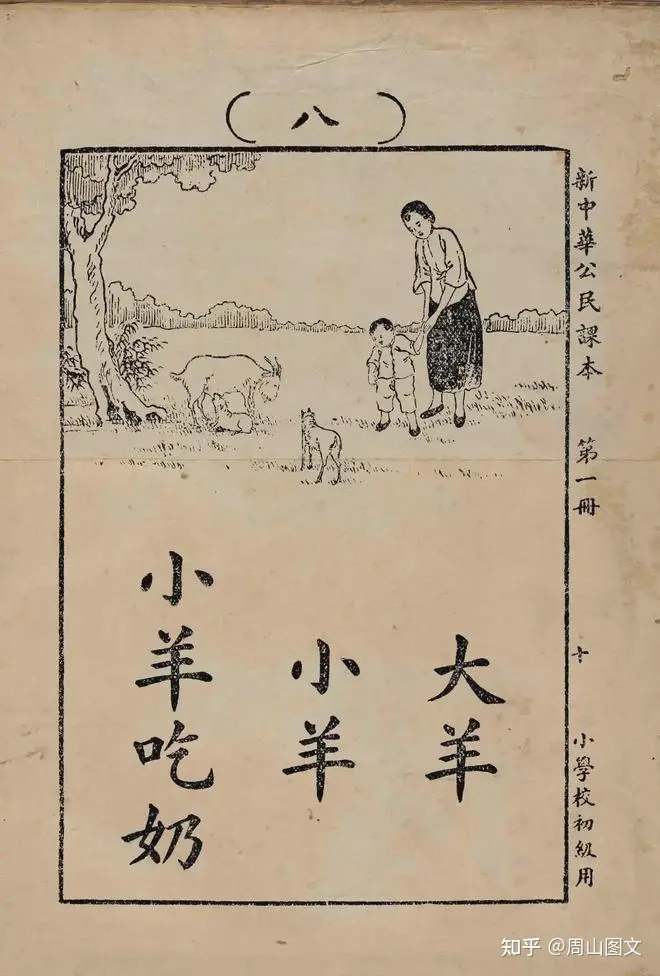 (八)
大羊
小羊
小羊吃奶
新中華公民課本 第一冊 十 小學校初級用
知乎 @周山图文